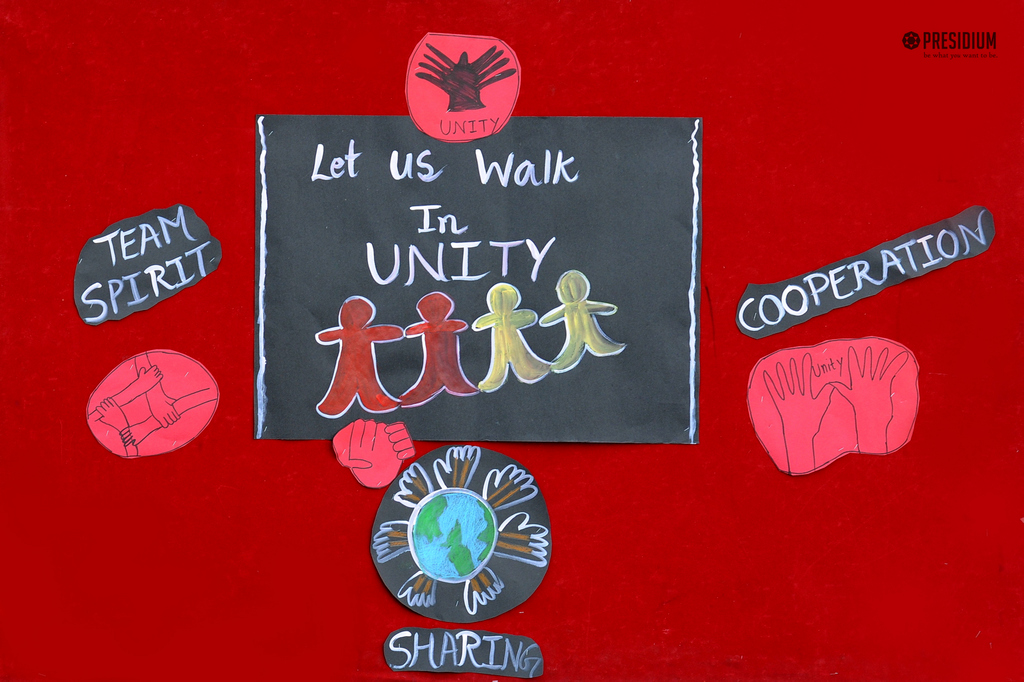 PRESIDIUM
be what you want to be
UNITY
Let us Walk
In
UNITY
TEAM
SPIRIT
COOPERATION
Unity
SHARING